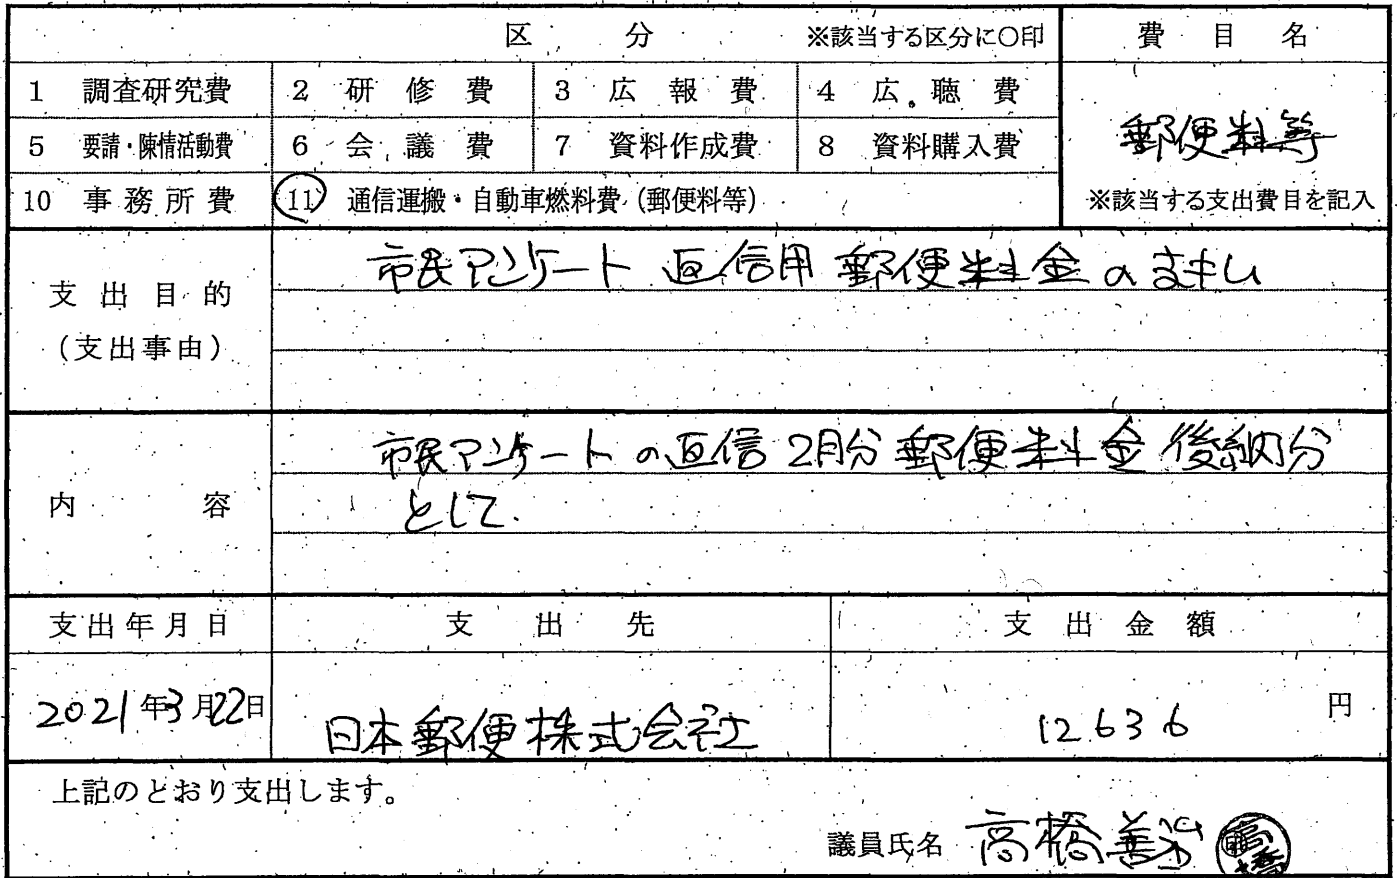 区 分 ※該当する区分に〇印 費目名
1 調査研究費 2 研修費 3 広報費 4 広聴費
郵便料等
5 要請・陳情活動費 6 会議費 7 資料作成費 8 資料購入費
10 事務所費 11 通信運搬・自動車燃料費（郵便料等） ※該当する支出費目を記入
支出目的
(支出事由)
市民アンケート 返信用 郵便料金の支払い
内容
市民アンケートの返信 2月分 郵便料金 後納分
として.
支出年月日 支出先 支出金額
2021年3月22日 日本郵便株式会社 12,636 円
上記のとおり支出します。
議員氏名 高橋善治 高橋